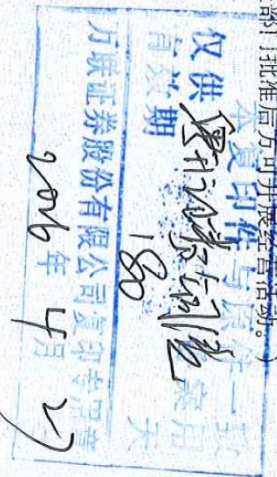 部门批准后方可开展经营活动。）
本复印件与原件一致
仅供 案用
有效期 180 天
万联证券股份有限公司复印专用章
年 4月